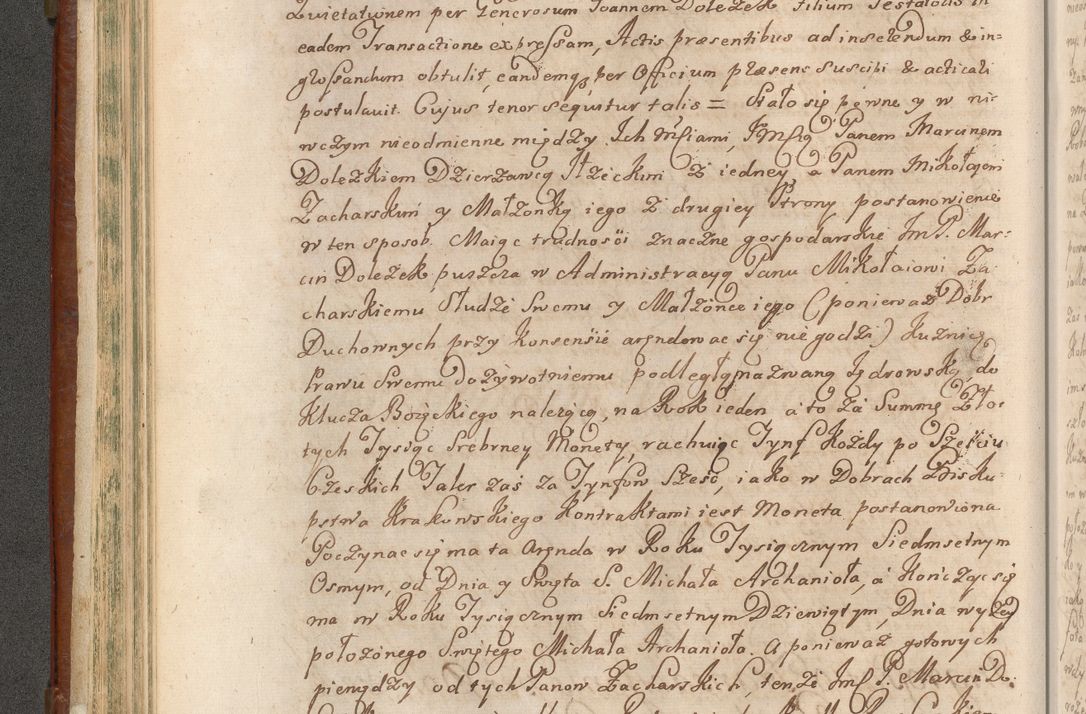 Zwietationem per Generosum Joannem Doleżek filium Testatoris in
eadem Transactione expressam, Actis præsentibus ad inserendum & in=
grossandum obtulit, eandemq, per Officium præsens suscipi & acticari
postulavit. Cujus tenor sequitur talis = Stało się pewne y w ni=
wczym nieodmienne między Ich Mściami, JMścią Panem Marcinem
Doleżkiem Dzierżawcą Iłżeckim z iedney, a Panem Mikołaiem
Zacharskim y Małżonką iego z drugiey Strony postanowienie
w ten sposob. Maiąc trudności znaczne gospodarskie Jm P. Mar=
cin Doleżek, puszcza w Administracyą Panu Mikołaiowi Za
charskiemu Słudze Swemu y Małżonce iego (ponieważ Dobr
Duchownych przy Konsensie arendowac się nie godzi) Kuźnicę
Prawu Swemu dożywotniemu podległą, nazwaną Jędrowską do
Klucza Bożęckiego należącą, na Rok ieden a to za Summę Zło=
tych Tysiąc Srebrney Monety, rachuiąc Tynf Każdy po Sześciu
Czeskich Taler zaś za Tynfow Sześć, iako w Dobrach Bisku=
pstwa Krakowskiego Kontraktami iest Moneta postanowiona
Poczynac się ma ta Arenda w Roku Tysiącznym Siedmsetnym
Osmym, od Dnia y Święta S. Michała Archanioła, a Kończyc się
ma w Roku Tysiącznym Siedmsetnym Dziewiątym, Dnia wyżey
położonego Świętego Michała Archanioła. A ponieważ gotowych
pieniędzy od tych Panow Zacharskich, tenże Jmść P. Marcin Do=